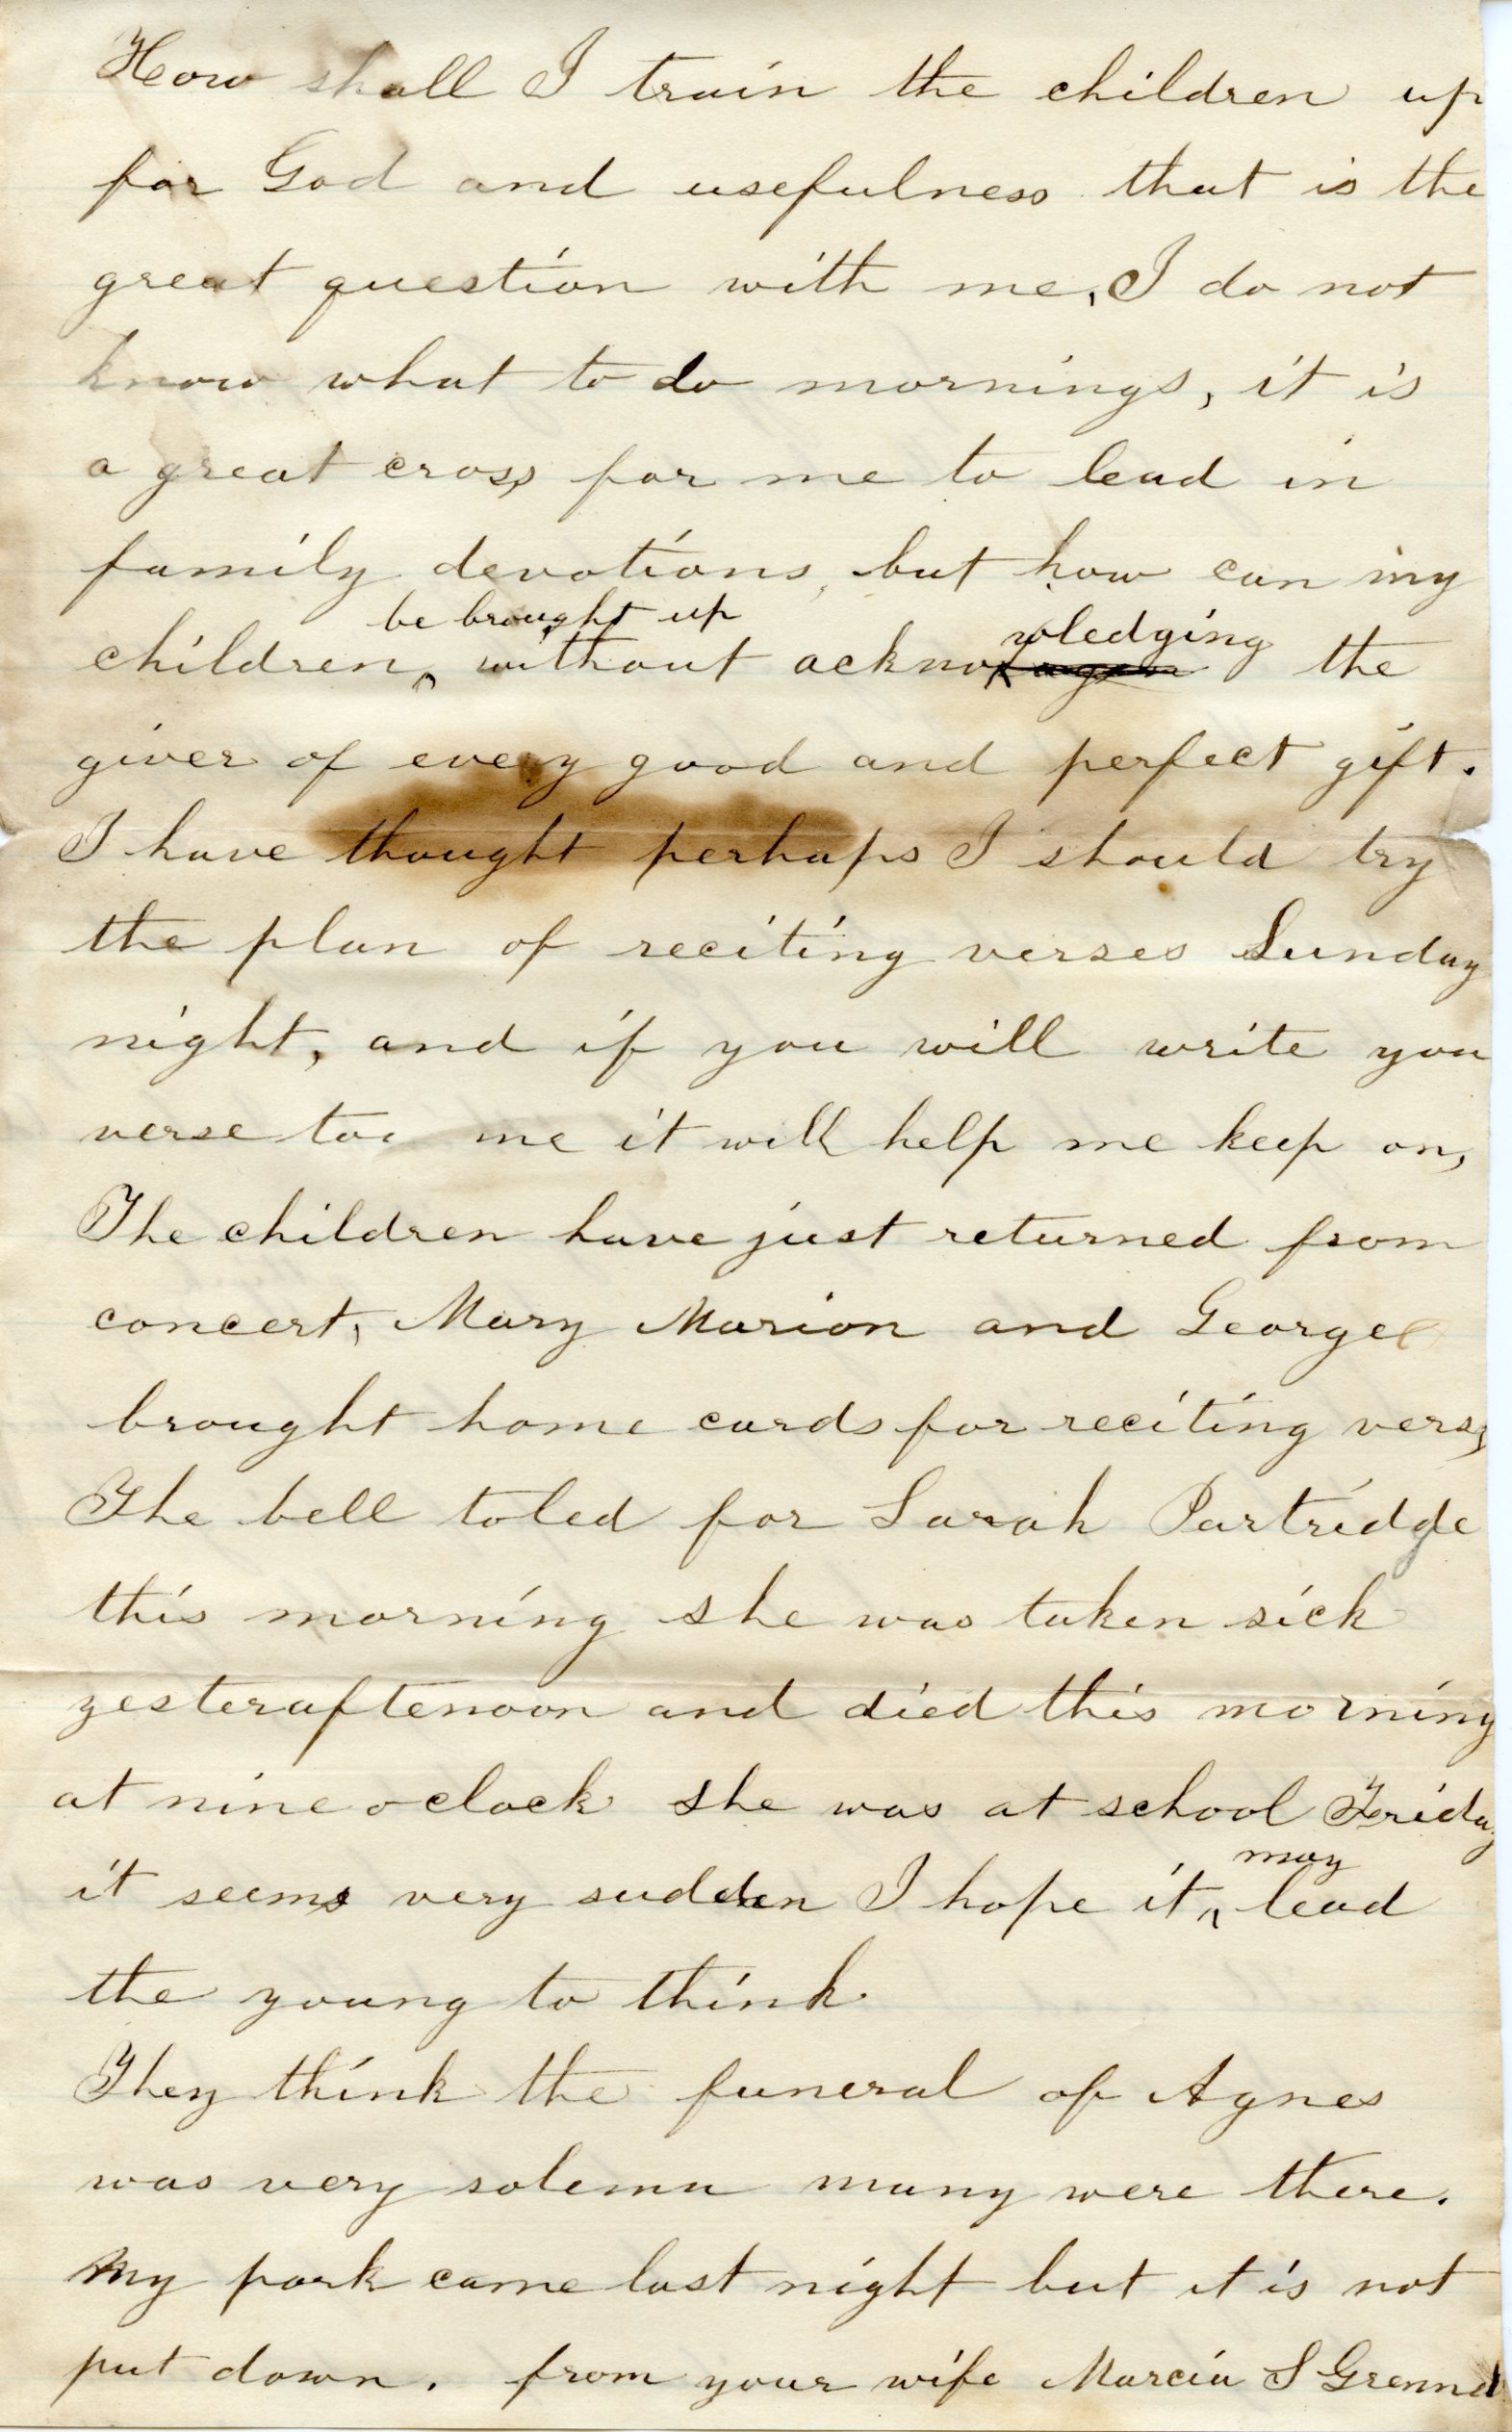 How shall I train the children up
for God and usefulness that is the
great question with me, I do not
know what to do mornings, it is
a great cross for me to lead in
family devotions, but how can my
be brought up wledging
children, ^ without acknow^ the
giver of every good and perfect gift.
I have thought perhaps I should try
the plan of reciting verses Sunday
night, and if you will write you
verse too me it will help me keep on,
The children have just returned from
concert, Mary Marion and George
brought home cards for reciting verses
The bell toled for Sarah Partridge
this morning she was taken sick
yesterafternoon and died this morning
at nine oclock she was at school Friday
it seems very sudden I hope it ^ may lead
the young to think
They think the funeral of Agnes
was very solemn many were there.
My pork came last night but it is not
put down. from your wife Marcia S